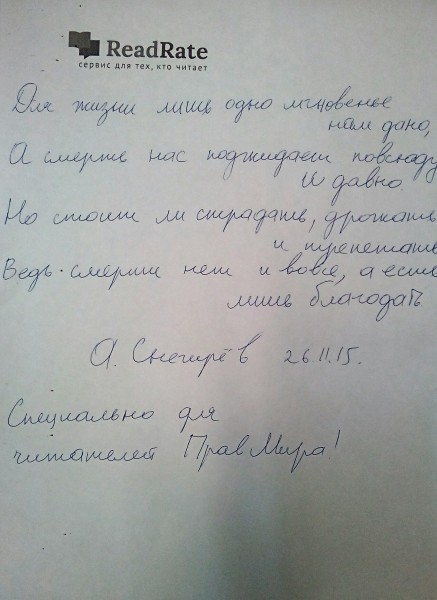 ReadRate
сервис для тех, кто читает
Для жизни лишь одно мгновенье
нам дано,
А смерть нас поджидает повсюду
и давно.
Но стоит ли страдать, дрожать
и трепетать
Ведь смерти нет и вовсе, а есть
лишь благодать.
А. Снегирёв 26.11.15.
Специально для
читателей ПравМира!